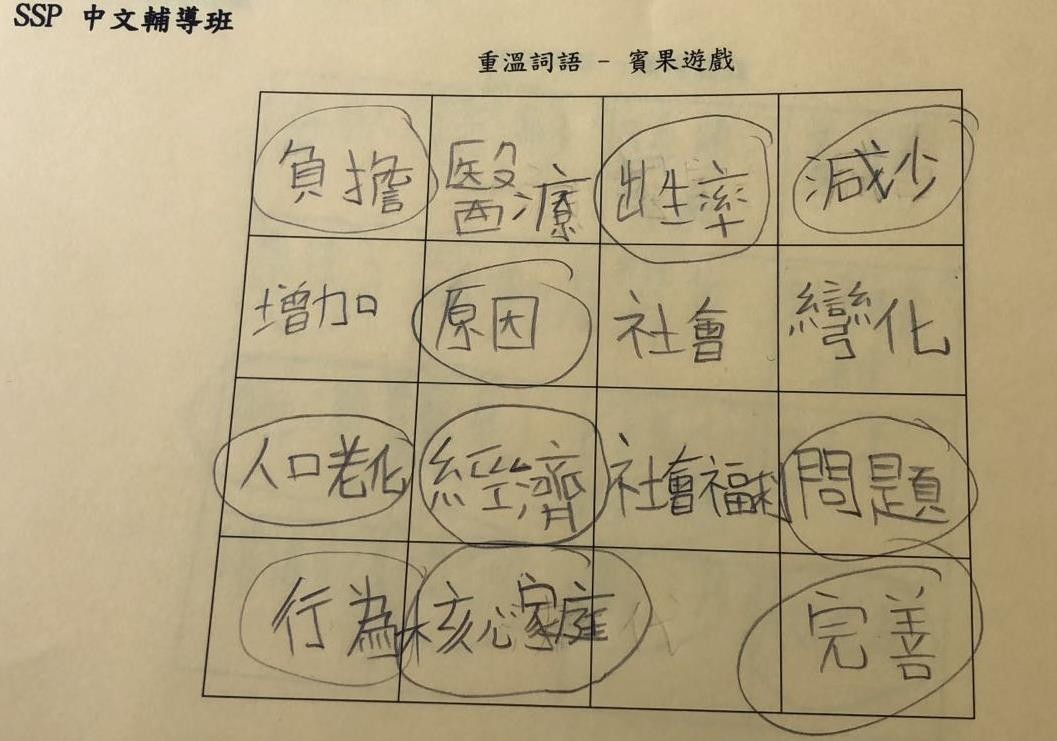 SSP 中文輔導班
重溫詞語 - 賓果遊戲
負擔 醫療 出生率 減少
增加 原因 社會 彎化
人口老化 經濟 社會福利 問題
行為 核心家庭 完善